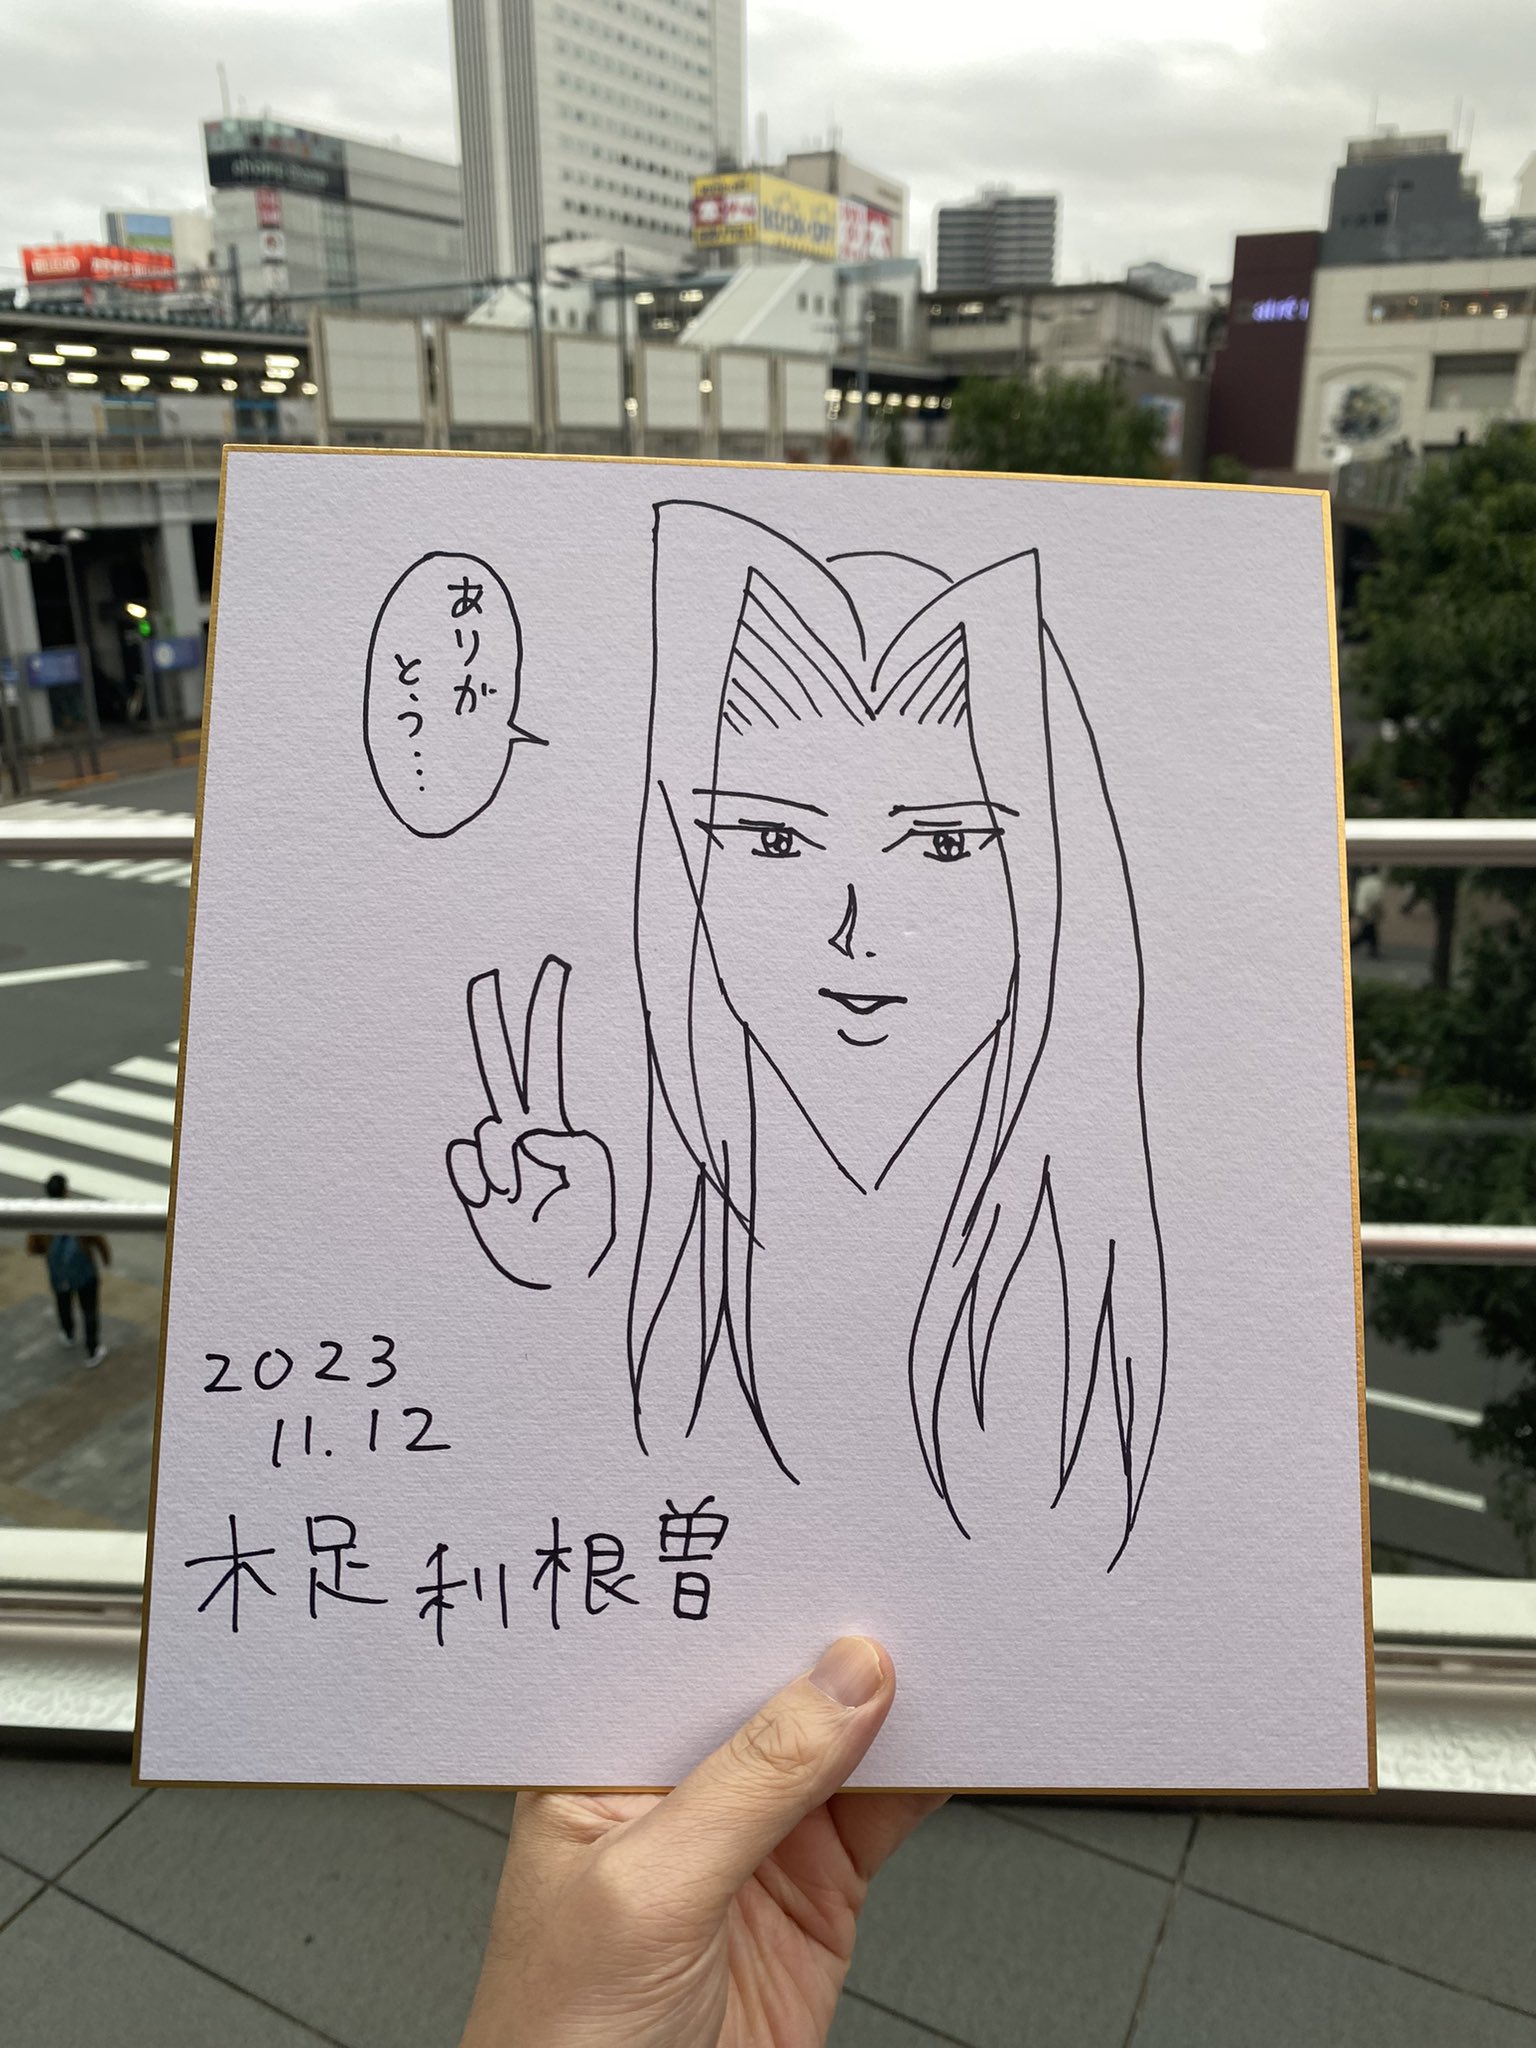 ありが
とう…
2023
11.12
木足利根曽
BOOK-OFF
atré